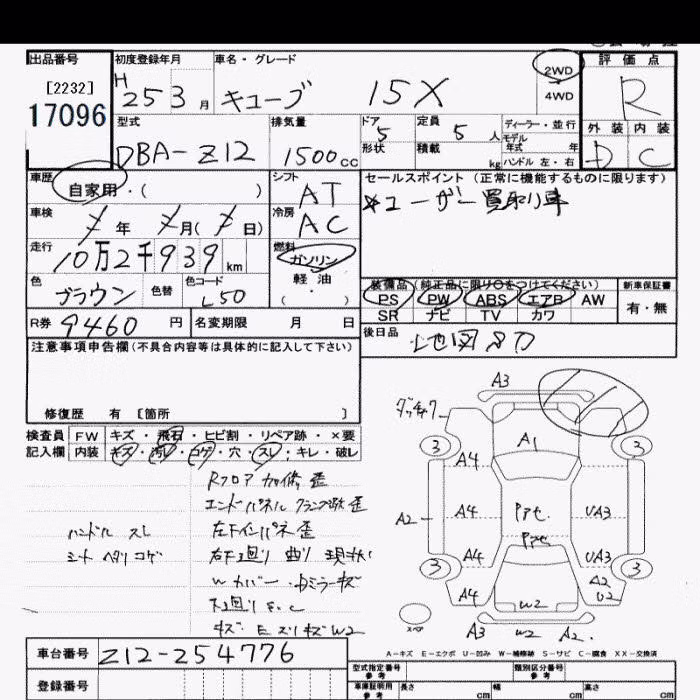 出品番号 初度登録年月 車名・グレード 2WD 評価点
[2232] H 25 3月 キューブ 15X 4WD R
17096
型式 排気量 ドア 定員 ディーラー・並行 外装 内装
DBA-Z12 1500cc 5 5人 モデル年式 年 D C
形状 積載 kg ハンドル 左・右
車歴 シフト セールスポイント(正常に機能するものに限ります)
自家用・( ) AT ユーザー買取り車
車検 年 月( 日) 冷房 AC
走行 燃料
10万2千939km ガソリン
色 色替 色コード 軽油 装備品(純正品に限り○をつけてください) 新車保証書
ブラウン L50 ( ・ ) PS PW ABS エアB AW 有・無
R券 9460円 名変期限 月 日 SR ナビ TV カワ
注意事項申告欄(不具合内容等は具体的に記入して下さい) 後日品 地図
修復歴 有 [箇所 ]
検査員 FW キズ・飛石・ヒビ割・リペア跡・×要
記入欄 内装 キズ・汚レ・コゲ・穴・スレ・キレ・破レ
Rフロア 加修 歪
エンドパネル
ハンドル スレ 左下インパネ歪
シート ヘタリ コゲ 右下廻り 曲り 現状
Wカバー ミラーキズ
下廻り
キズ E W2
A3
A1
3 3
A4
A2 A4 UA3
A4 UA3
3 3
A4 A2
U2
W2
スペア A3 W2 A2
A-キズ E-エクボ U-凹み W-補修跡 S-サビ C-腐食 XX-交換済
車台番号 Z12-254776
型式指定番号 参考 類別区分番号 参考
登録番号 車庫証明用 参考 長さ cm 幅 cm 高さ cm